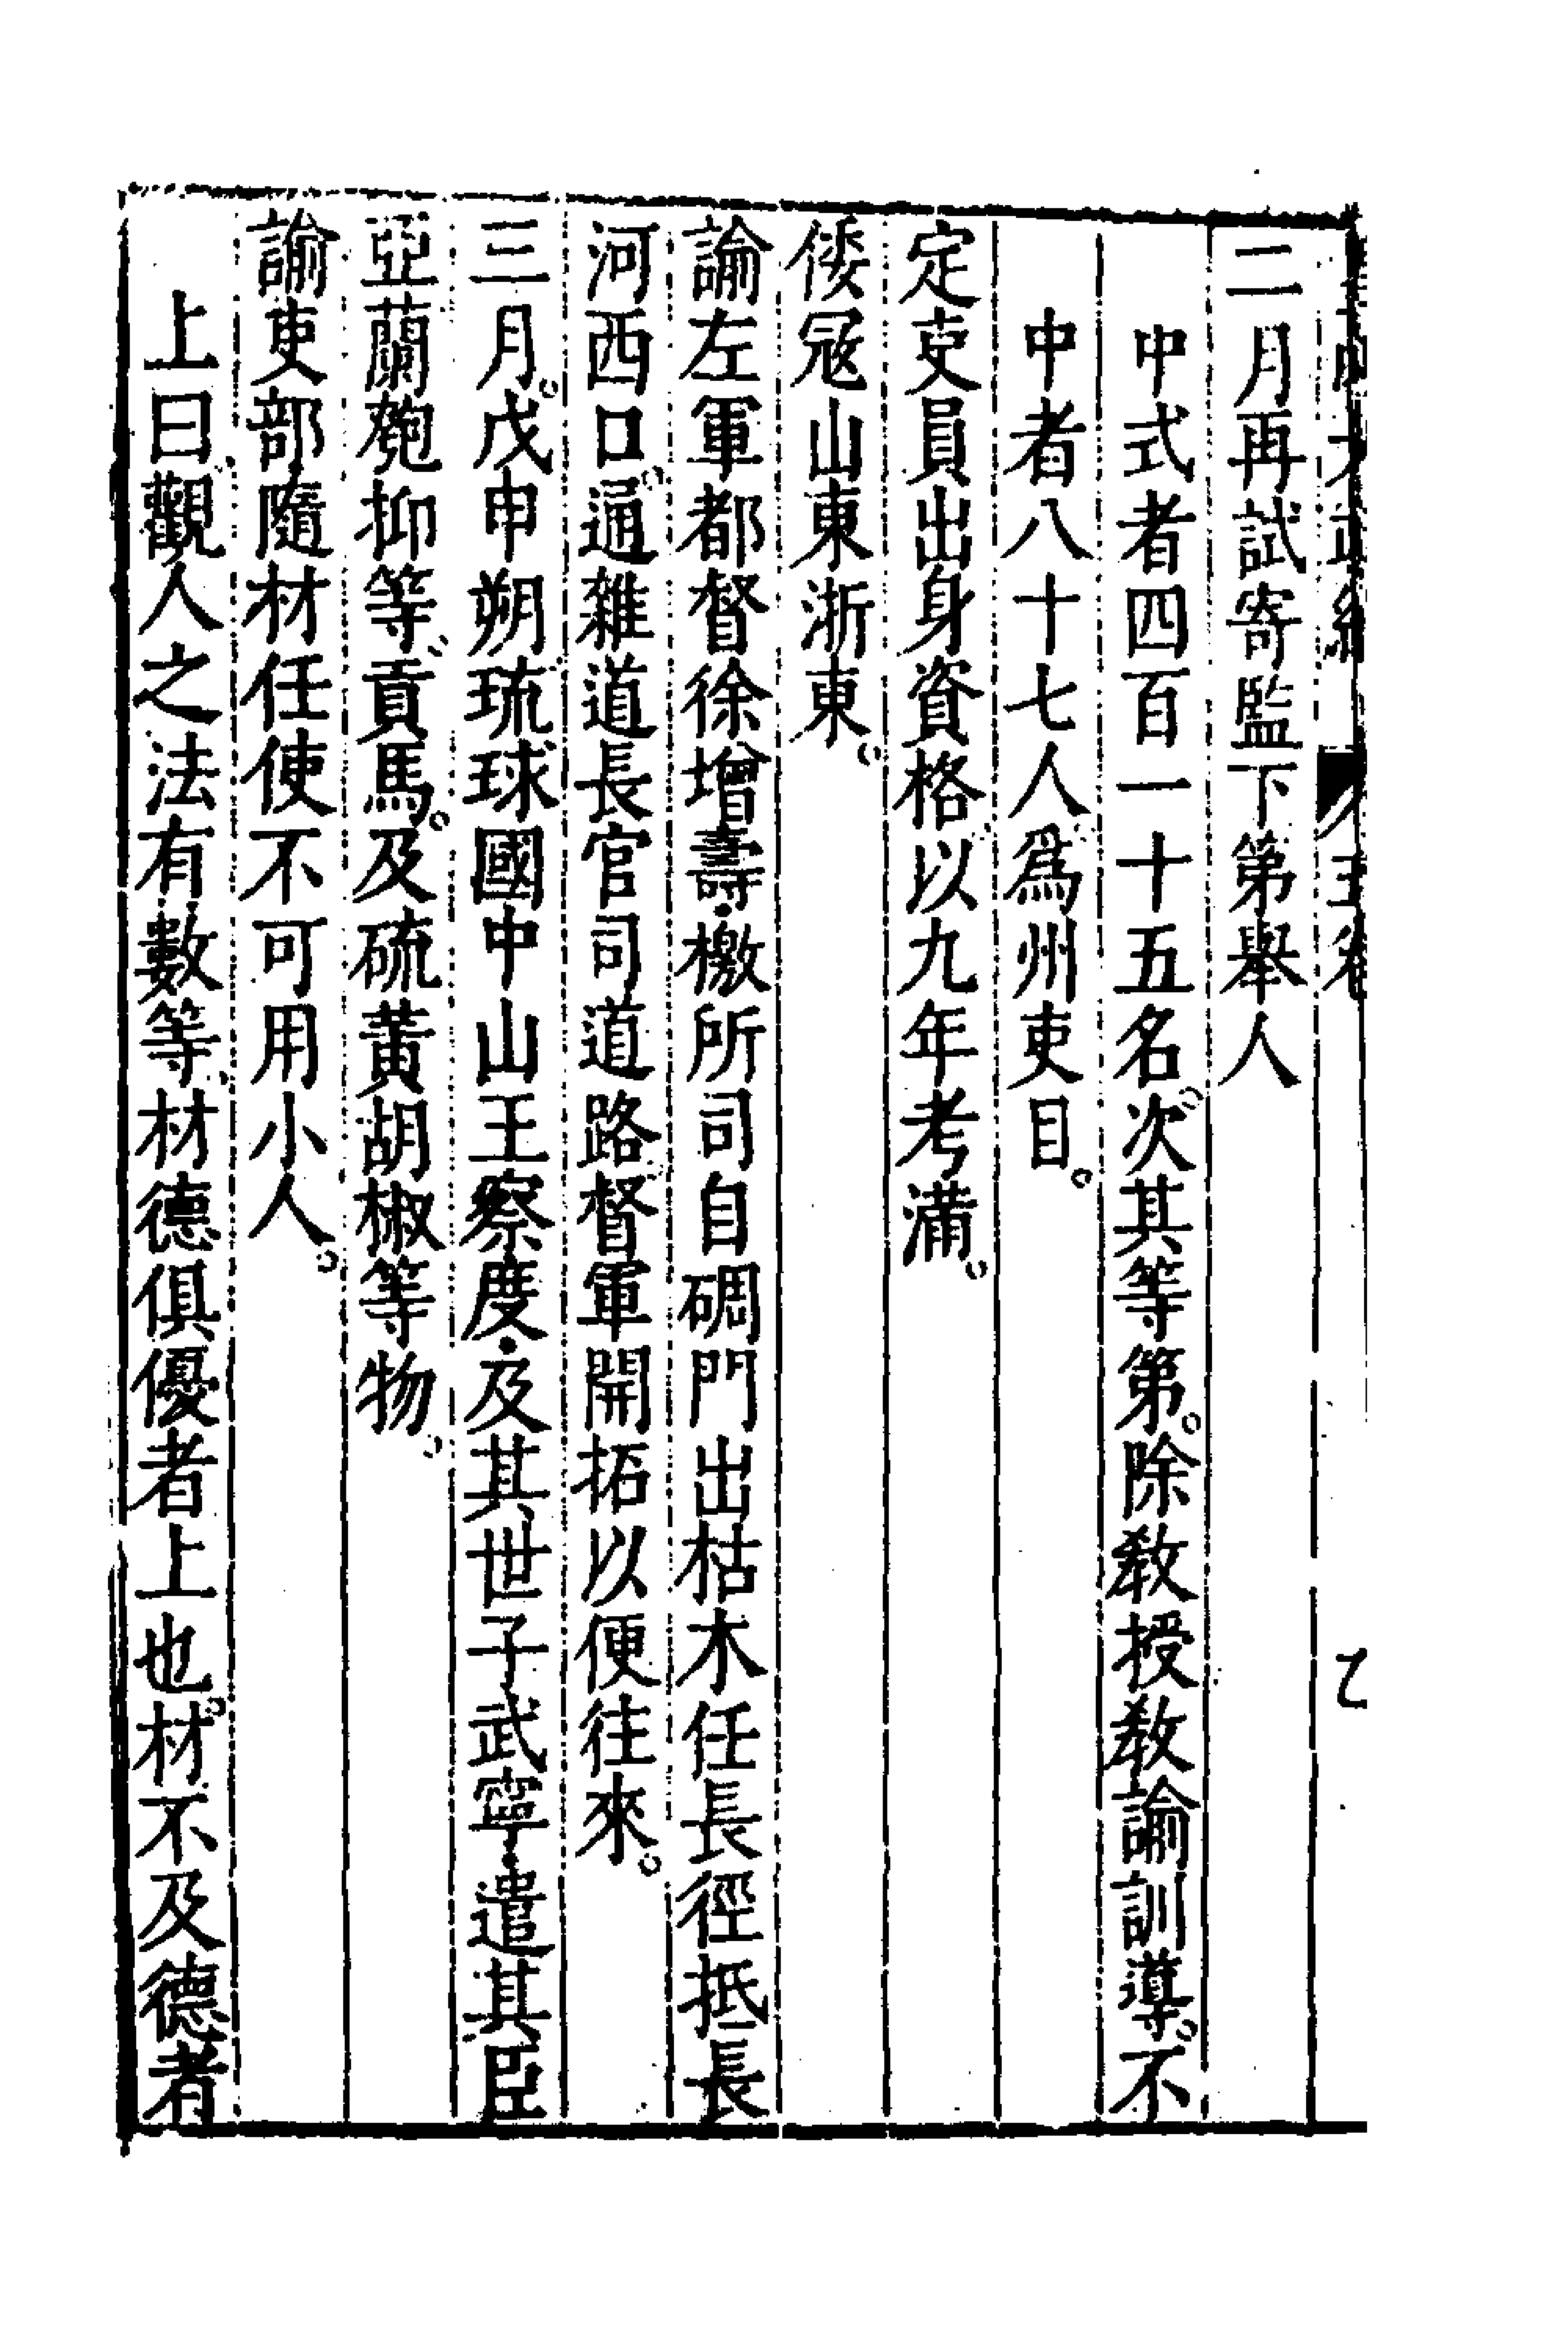 二月再試寄監下第舉人
中式者四百一十五名次其等第。除教授教諭訓導。不
中者八十七人爲州吏目。
定吏員出身資格以九年考滿。
倭寇山東浙東。
諭左軍都督徐增壽檄所司自碉門出枯木任長徑抵長
河西口。通雜道長官司道路督軍開拓以便往來。
三月。戊申朔琉球國中山王察度及其世子武寧遣其臣
亞蘭匏抑等貢馬。及硫黃胡椒等物。
諭吏部隨材任使不可用小人。
上曰觀人之法有數等材德俱優者上也。材不及德者